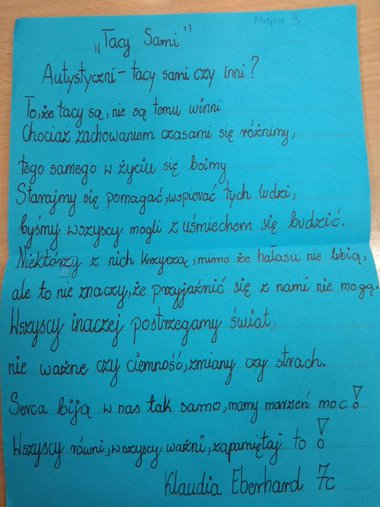 Miejsce IV
„Tacy Sami"
Autystyczni - tacy sami czy inni?
To, że tacy są, nie są temu winni
Chociaż zachowaniem czasami się różnimy,
tego samego w życiu się boimy
Starajmy się pomagać, wspierać tych ludzi,
byśmy wszyscy mogli z uśmiechem się budzić.
Niektórzy z nich krzyczą, mimo że hałasu nie lubią,
ale to nie znaczy, że przyjaźnić się z nami nie mogą.
Wszyscy inaczej postrzegamy świat,
nie ważne czy ciemność, zmiany czy strach.
Serca biją w nas tak samo, mamy marzeń moc!
Wszyscy równi, wszyscy ważni, zapamiętaj to!
Klaudia Eberhard 7c